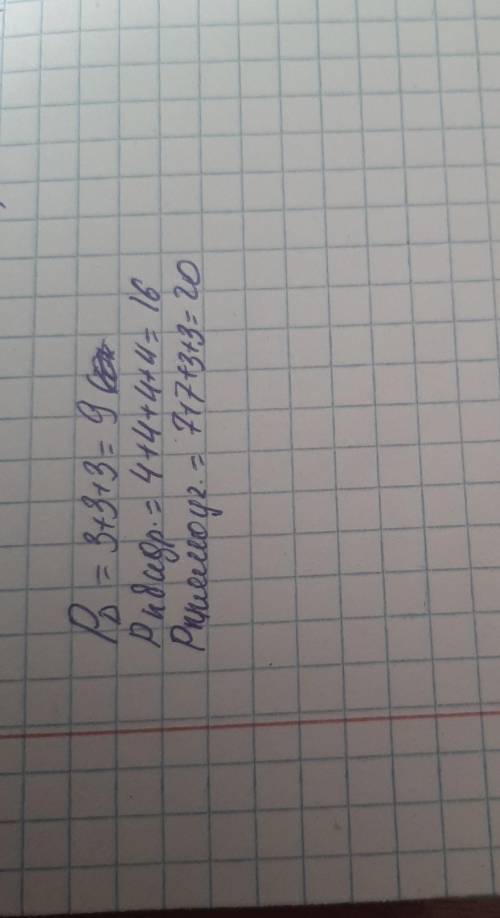 P△ = 3+3+3= 9
Pквадр. = 4+4+4+4= 16
Pпрямоуг. = 7+7+3+3= 20